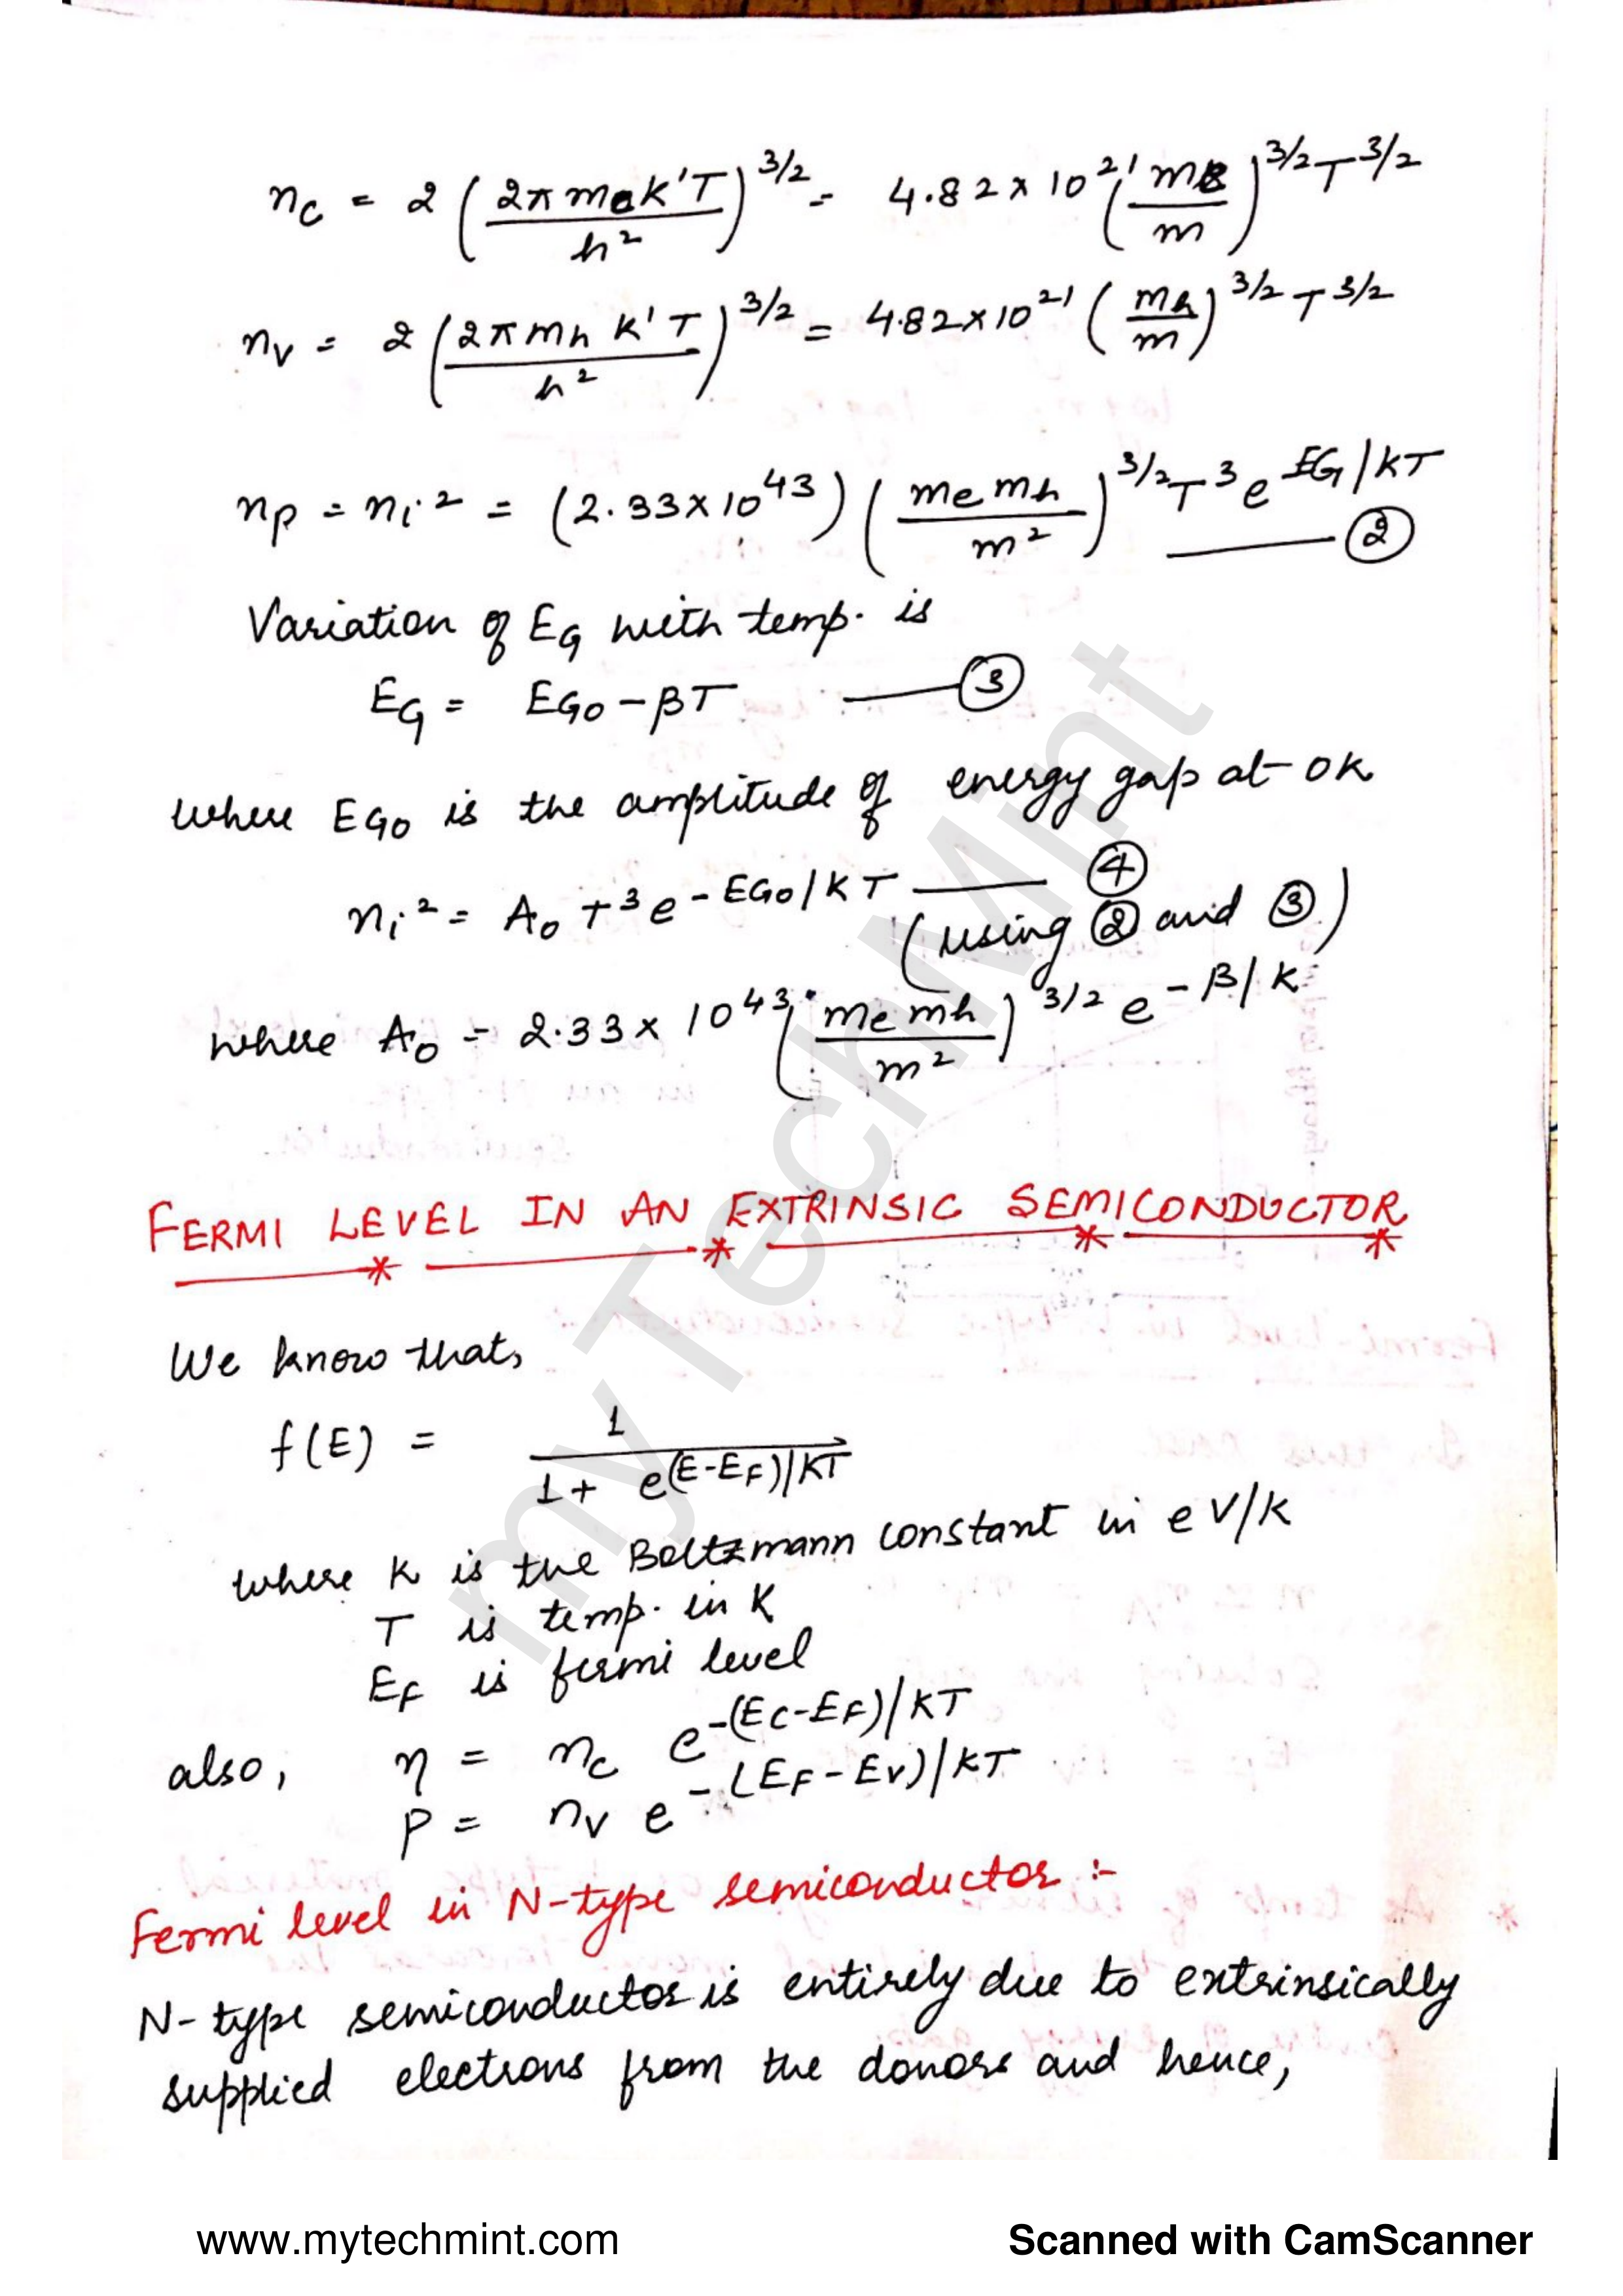 nc = 2 (2π me k'T / h²)^3/2 = 4.82 x 10^21 (me / m)^3/2 T^3/2
nv = 2 (2π mh k'T / h²)^3/2 = 4.82 x 10^21 (mh / m)^3/2 T^3/2
np = ni² = (2.33 x 10^43) (me mh / m²)^3/2 T^3 e^EG/kT —— ②
Variation of EG with temp. is
EG = EGO - βT —— ③
where EGO is the amplitude of energy gap at 0K
ni² = A0 T^3 e^-EGO/KT —— ④
(using ② and ③)
where A0 = 2.33 x 10^43 (me mh / m²)^3/2 e^-β/k
FERMI LEVEL IN AN EXTRINSIC SEMICONDUCTOR
We know that,
f(E) = 1 / 1 + e^(E-EF)/KT
where K is the Boltzmann constant in eV/K
T is temp. in K
EF is fermi level
also, η = nc e^-(EC-EF)/KT
P = nv e^-(EF-EV)/KT
Fermi level in N-type semiconductor :-
N-type semiconductor is entirely due to extrinsically
supplied electrons from the donors and hence,
myTechMint
www.mytechmint.com Scanned with CamScanner